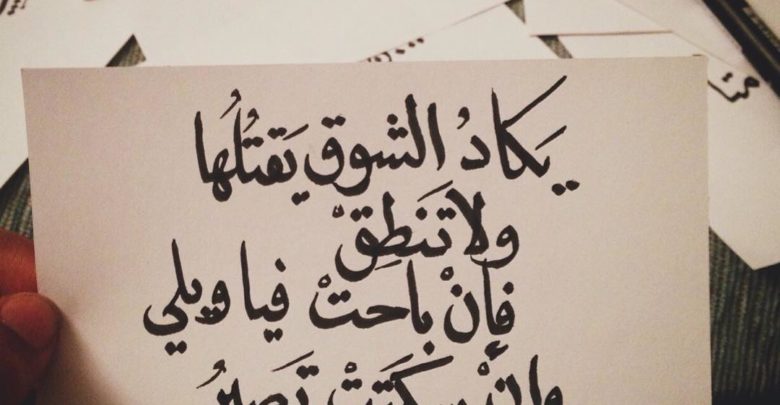 يَكادُ الشوق يَقتُلُها
ولا تَنطِقْ
فإنْ باحتْ فيا ويلي
وإنْ سكتَتْ تصيرُ